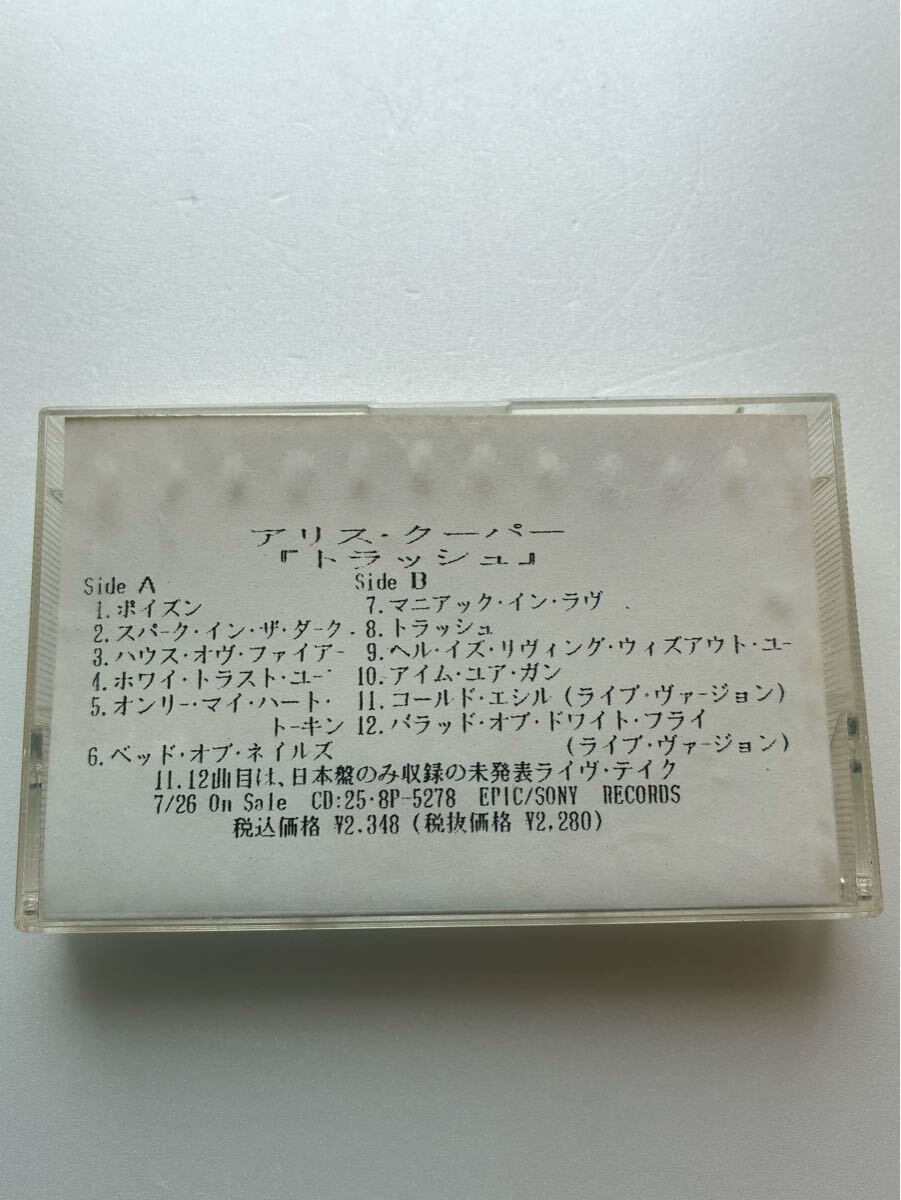 アリス・クーパー
『トラッシュ』
Side A
1.ポイズン
2.スパーク・イン・ザ・ダーク
3.ハウス・オヴ・ファイアー
4.ホワイ・トラスト・ユー
5.オンリー・マイ・ハート・
トーキン
6.ベッド・オブ・ネイルズ
Side B
7.マニアック・イン・ラヴ
8.トラッシュ
9.ヘル・イズ・リヴィング・ウィズアウト・ユー
10.アイム・ユア・ガン
11.コールド・エシル(ライブ・ヴァージョン)
12.バラッド・オブ・ドワイト・フライ
(ライブ・ヴァージョン)
11.12曲目は、日本盤のみ収録の未発表ライヴ・テイク
7/26 On Sale CD:25・8P-5278 EPIC/SONY RECORDS
税込価格 ¥2.348(税抜価格 ¥2,280)